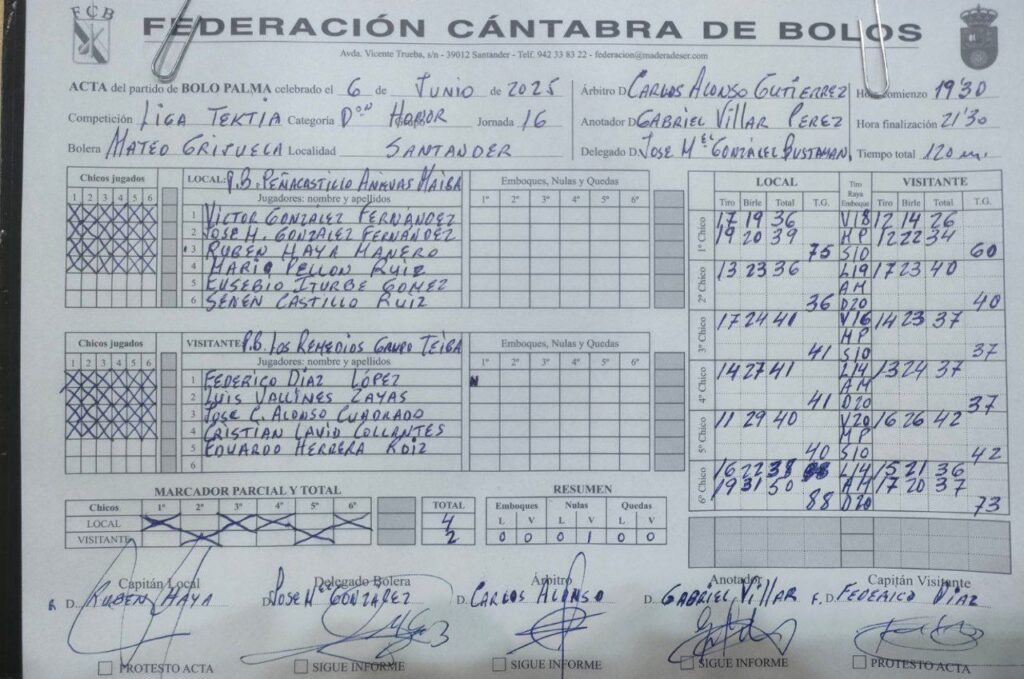 FCB
FEDERACIÓN CÁNTABRA DE BOLOS
Avda. Vicente Trueba, s/n - 39012 Santander - Telf. 942 33 83 22 - federacion@maderadeser.com
ACTA del partido de BOLO PALMA celebrado el 6 de JUNIO de 2025
Competición LIGA TEKTIA Categoría Dºn HONOR Jornada 16
Bolera MATEO GRIJUELA Localidad SANTANDER
Árbitro D. CARLOS ALONSO GUTIERREZ
Anotador D. GABRIEL VILLAR PEREZ
Delegado D. JOSE Mª GONZÁLEZ BUSTAMAN.
Hora comienzo 19'30
Hora finalización 21'30
Tiempo total 120 m.
Chicos jugados
1 2 3 4 5 6
LOCAL: P.B. PEÑACASTILLO ANIEVAS MAIBA
Jugadores: nombre y apellidos
1 VICTOR GONZÁLEZ FERNÁNDEZ
2 JOSE M. GONZALEZ FERNÁNDEZ
3 RUBEN HAYA MANERO
4 MARIO PELLON RUIZ
5 EUSEBIO ITURBE GOMEZ
6 SENEN CASTILLO RUIZ
Emboques, Nulas y Quedas
1º 2º 3º 4º 5º 6º
Chicos jugados
1 2 3 4 5 6
VISITANTE P.B. LOS REMEDIOS GRUPO TEIBA
Jugadores: nombre y apellidos
1 FEDERICO DIAZ LÓPEZ
2 LUIS VALLINES ZAYAS
3 JOSE C. ALONSO CUADRADO
4 CRISTIAN LAVID COLLANTES
5 EDUARDO HERRERA ROIZ
6
Emboques, Nulas y Quedas
1º 2º 3º 4º 5º 6º
N
LOCAL Tiro Raya Emboque VISITANTE
Tiro Birle Total T.G. Tiro Birle Total T.G.
1º Chico
17 19 36 V18 12 14 26
19 20 39 MP 12 22 34
75 S10 60
2º Chico
13 23 36 L19 17 23 40
AM
36 D20 40
3º Chico
17 24 41 V16 14 23 37
MP
41 S10 37
4º Chico
14 27 41 L14 13 24 37
AM
41 D20 37
5º Chico
11 29 40 V20 16 26 42
MP
40 S10 42
6º Chico
16 22 38 L14 15 21 36
19 31 50 AM 17 20 37
88 D20 73
MARCADOR PARCIAL Y TOTAL
Chicos 1º 2º 3º 4º 5º 6º TOTAL
LOCAL 4
VISITANTE 2
RESUMEN
Emboques Nulas Quedas
L V L V L V
0 0 0 1 0 0
Capitán Local
D. RUBEN HAYA
Delegado Bolera
D. JOSE Mª GONZÁLEZ
Árbitro
D. CARLOS ALONSO
Anotador
D. GABRIEL VILLAR
Capitán Visitante
F. D. FEDERICO DIAZ
PROTESTO ACTA
SIGUE INFORME
SIGUE INFORME
SIGUE INFORME
PROTESTO ACTA